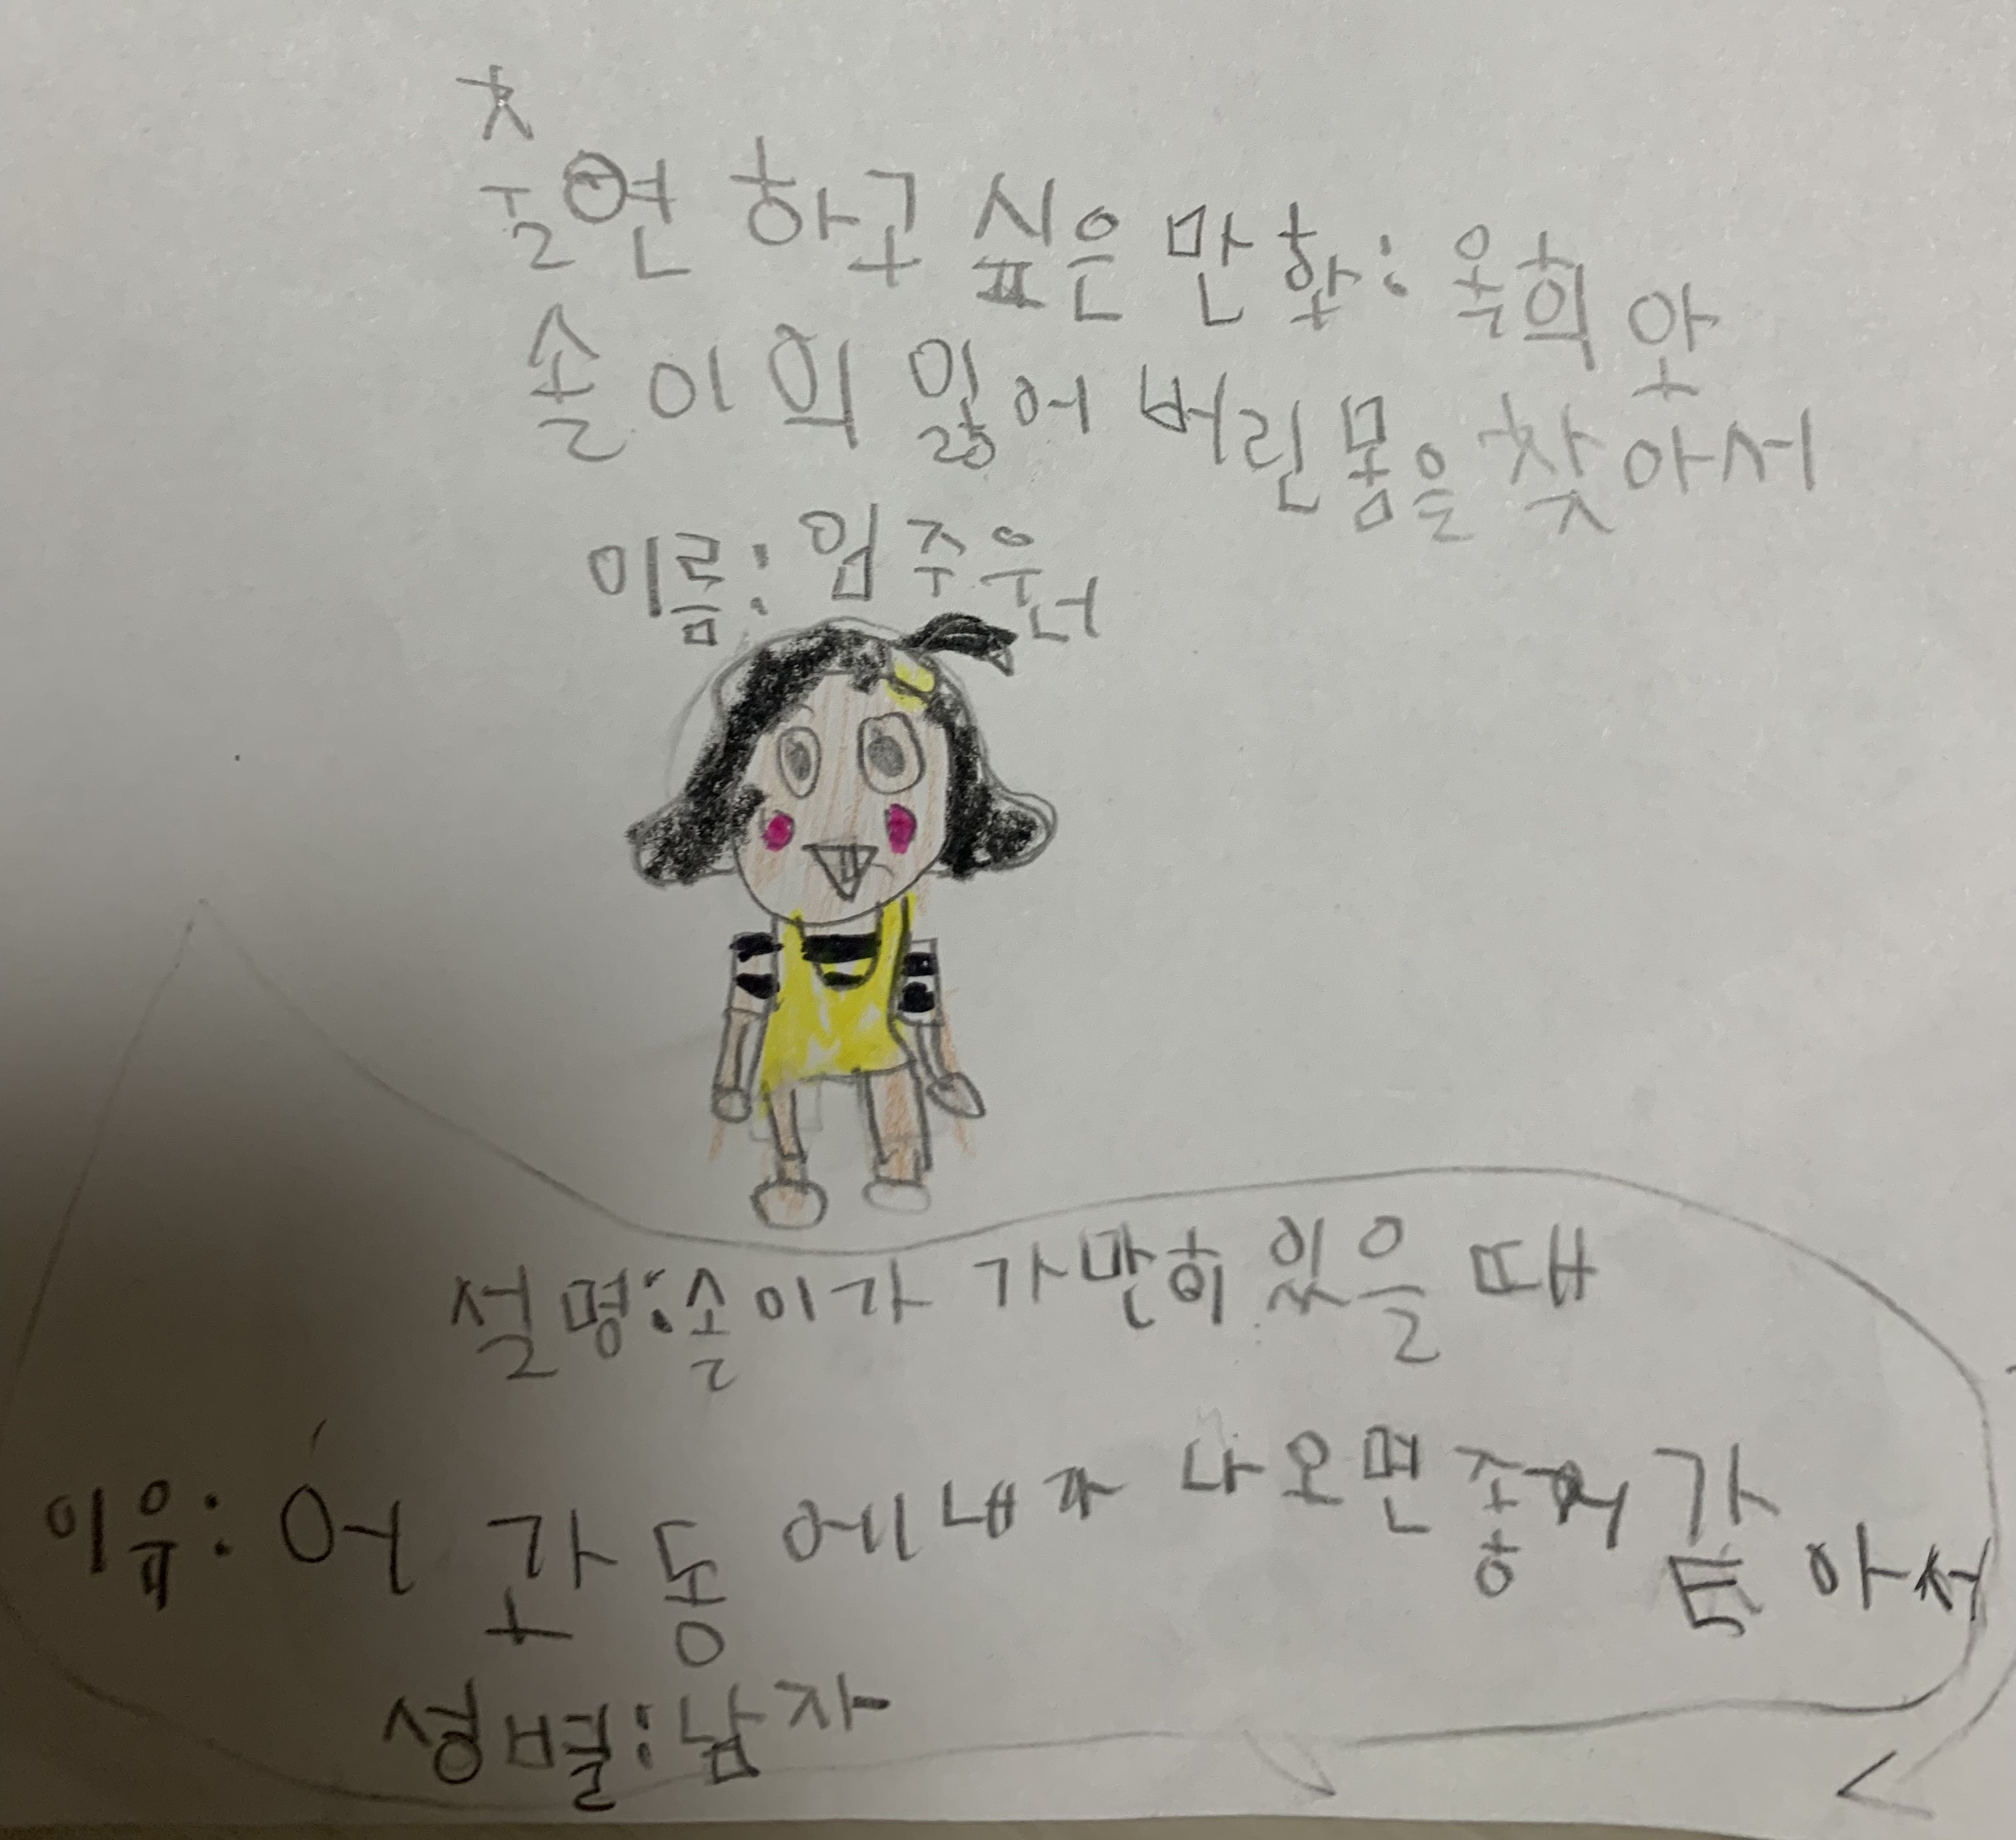 출연 하고 싶은 만화: 옥희 와
솔이의 잃어 버린 몸을 찾아서
이름: 임주원
설명: 솔이가 가만히 있을 때
이유: 어 과 동 에 내가 나오면 좋 같아서
성별: 남자